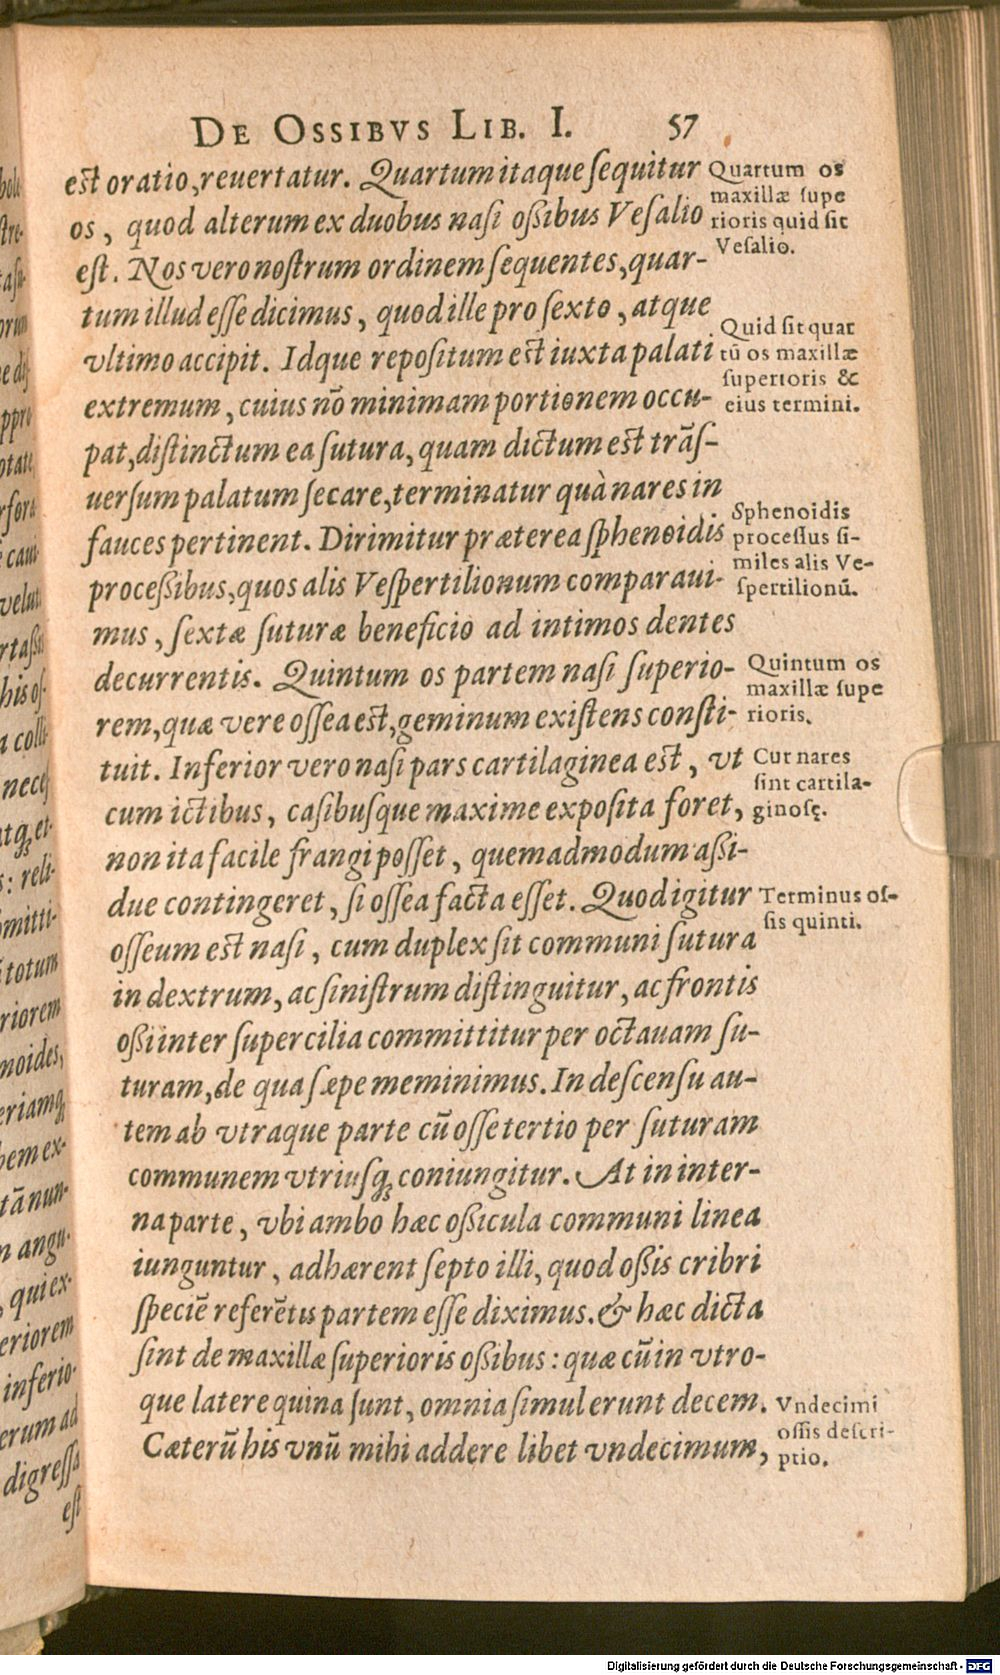 DE OSSIBVS LIB. I. 57
est oratio, reuertatur. Quartum itaque sequitur
os, quod alterum ex duobus nasi oßibus Vesalio
est. Nos vero nostrum ordinem sequentes, quar-
tum illud esse dicimus, quod ille pro sexto, atque
vltimo accipit. Idque repositum est iuxta palati
extremum, cuius nõ minimam portionem occu-
pat, distinctum ea sutura, quam dictum est trãs-
uersum palatum secare, terminatur quà nares in
fauces pertinent. Dirimitur præterea sphenoidis
processibus, quos alis Vespertilionum comparaui-
mus, sextæ suturæ beneficio ad intimos dentes
decurrentis. Quintum os partem nasi superio-
rem, quæ vere ossea est, geminum existens consti-
tuit. Inferior vero nasi pars cartilaginea est, vt
cum ictibus, casibusque maxime exposita foret,
non ita facile frangi posset, quemadmodum aßi-
due contingeret, si ossea facta esset. Quod igitur
osseum est nasi, cum duplex sit communi sutura
in dextrum, ac sinistrum distinguitur, ac frontis
oßi inter supercilia committitur per octauam su-
turam, de qua sæpe meminimus. In descensu au-
tem ab vtraque parte cũ osse tertio per suturam
communem vtriusq́ꝫ coniungitur. At in inter-
na parte, vbi ambo hæc oßicula communi linea
iunguntur, adhærent septo illi, quod oßis cribri
speciẽ referẽtis partem esse diximus. & hæc dicta
sint de maxillæ superioris oßibus: quæ cũ in vtro-
que latere quina sunt, omnia simul erunt decem.
Cæterũ his vnũ mihi addere libet vndecimum,
Quartum os
maxillæ supe
rioris quid sit
Vesalio.
Quid sit quar
tũ os maxillæ
superioris &
eius termini.
Sphenoidis
processus si-
miles alis Ve-
spertilionũ.
Quintum os
maxillæ supe
rioris.
Cur nares
sint cartila-
ginosę.
Terminus os-
sis quinti.
Vndecimi
ossis descri-
ptio.
Digitalisierung gefördert durch die Deutsche Forschungsgemeinschaft - DFG